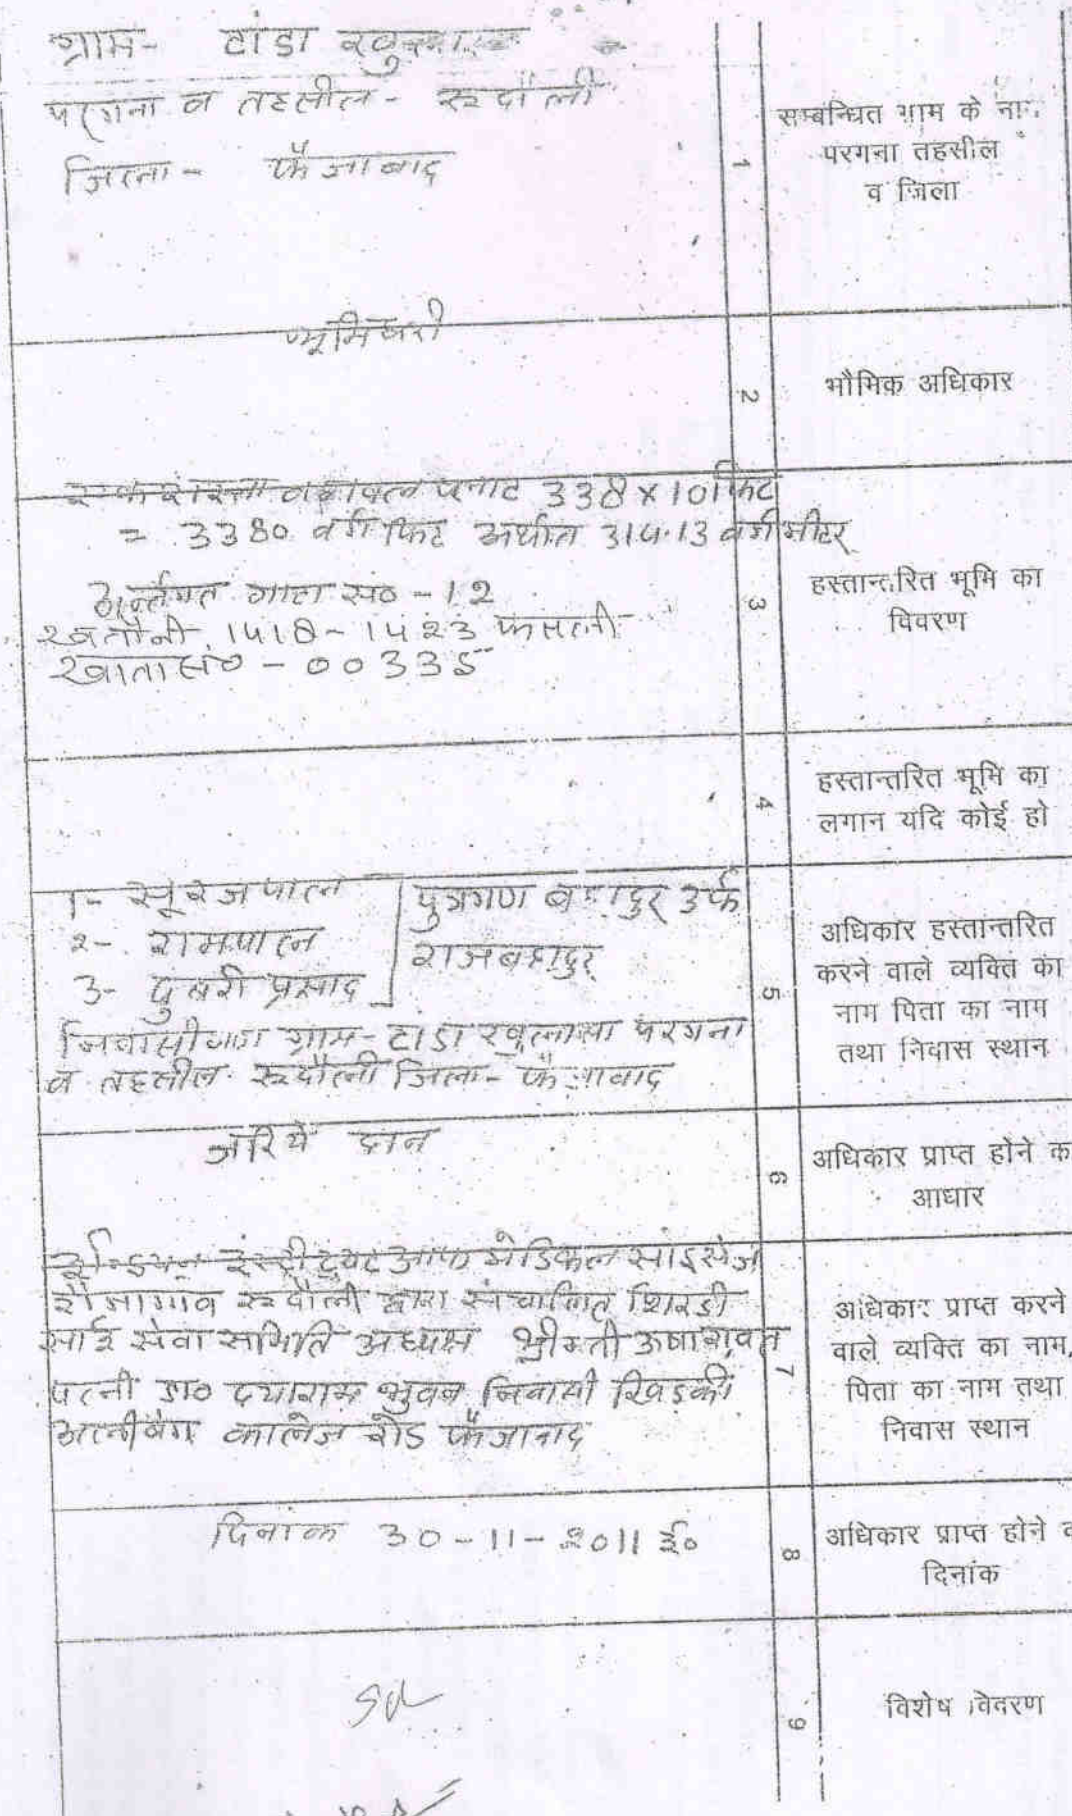 ग्राम- टांडा खुलासा
परगना व तहसील- रूदौली
जिला- फैजाबाद
1
सम्बन्धित ग्राम के नाम
परगना तहसील
व जिला
भूमिधरी
2
भौमिक अधिकार
प्लाट 338 x 10 फिट
= 3380 वर्ग फिट अर्थात 314.13 वर्ग मीटर
अर्न्तगत गाटा सं० - 12
खतौनी 1418 - 1423 फसली
खाता सं० - 00335
3
हस्तान्तरित भूमि का
विवरण
4
हस्तान्तरित भूमि का
लगान यदि कोई हो
1- सूरजपाल
2- रामपाल
3- दुलारी प्रसाद
पुत्रगण बहादुर उर्फ
राजबहादुर
निवासीगण ग्राम- टांडा खुलासा परगना
व तहसील रूदौली जिला- फैजाबाद
5
अधिकार हस्तान्तरित
करने वाले व्यक्ति का
नाम पिता का नाम
तथा निवास स्थान
जरिये दान
6
अधिकार प्राप्त होने क
आधार
इण्डियन इंस्टीट्यूट आफ मेडिकल साइंसेज
रौजागांव रूदौली द्वारा संचालित शिरडी
साई सेवा समिति अध्यक्ष श्रीमती ऊषा रावत
पत्नी डा० दयाराम भुवन निवासी खिड़की
अलीबेग कालेज रोड फैजाबाद
7
अधिकार प्राप्त करने
वाले व्यक्ति का नाम,
पिता का नाम तथा
निवास स्थान
दिनांक 30-11-2011 ई०
8
अधिकार प्राप्त होने क
दिनांक
Sd
9
विशेष विवरण